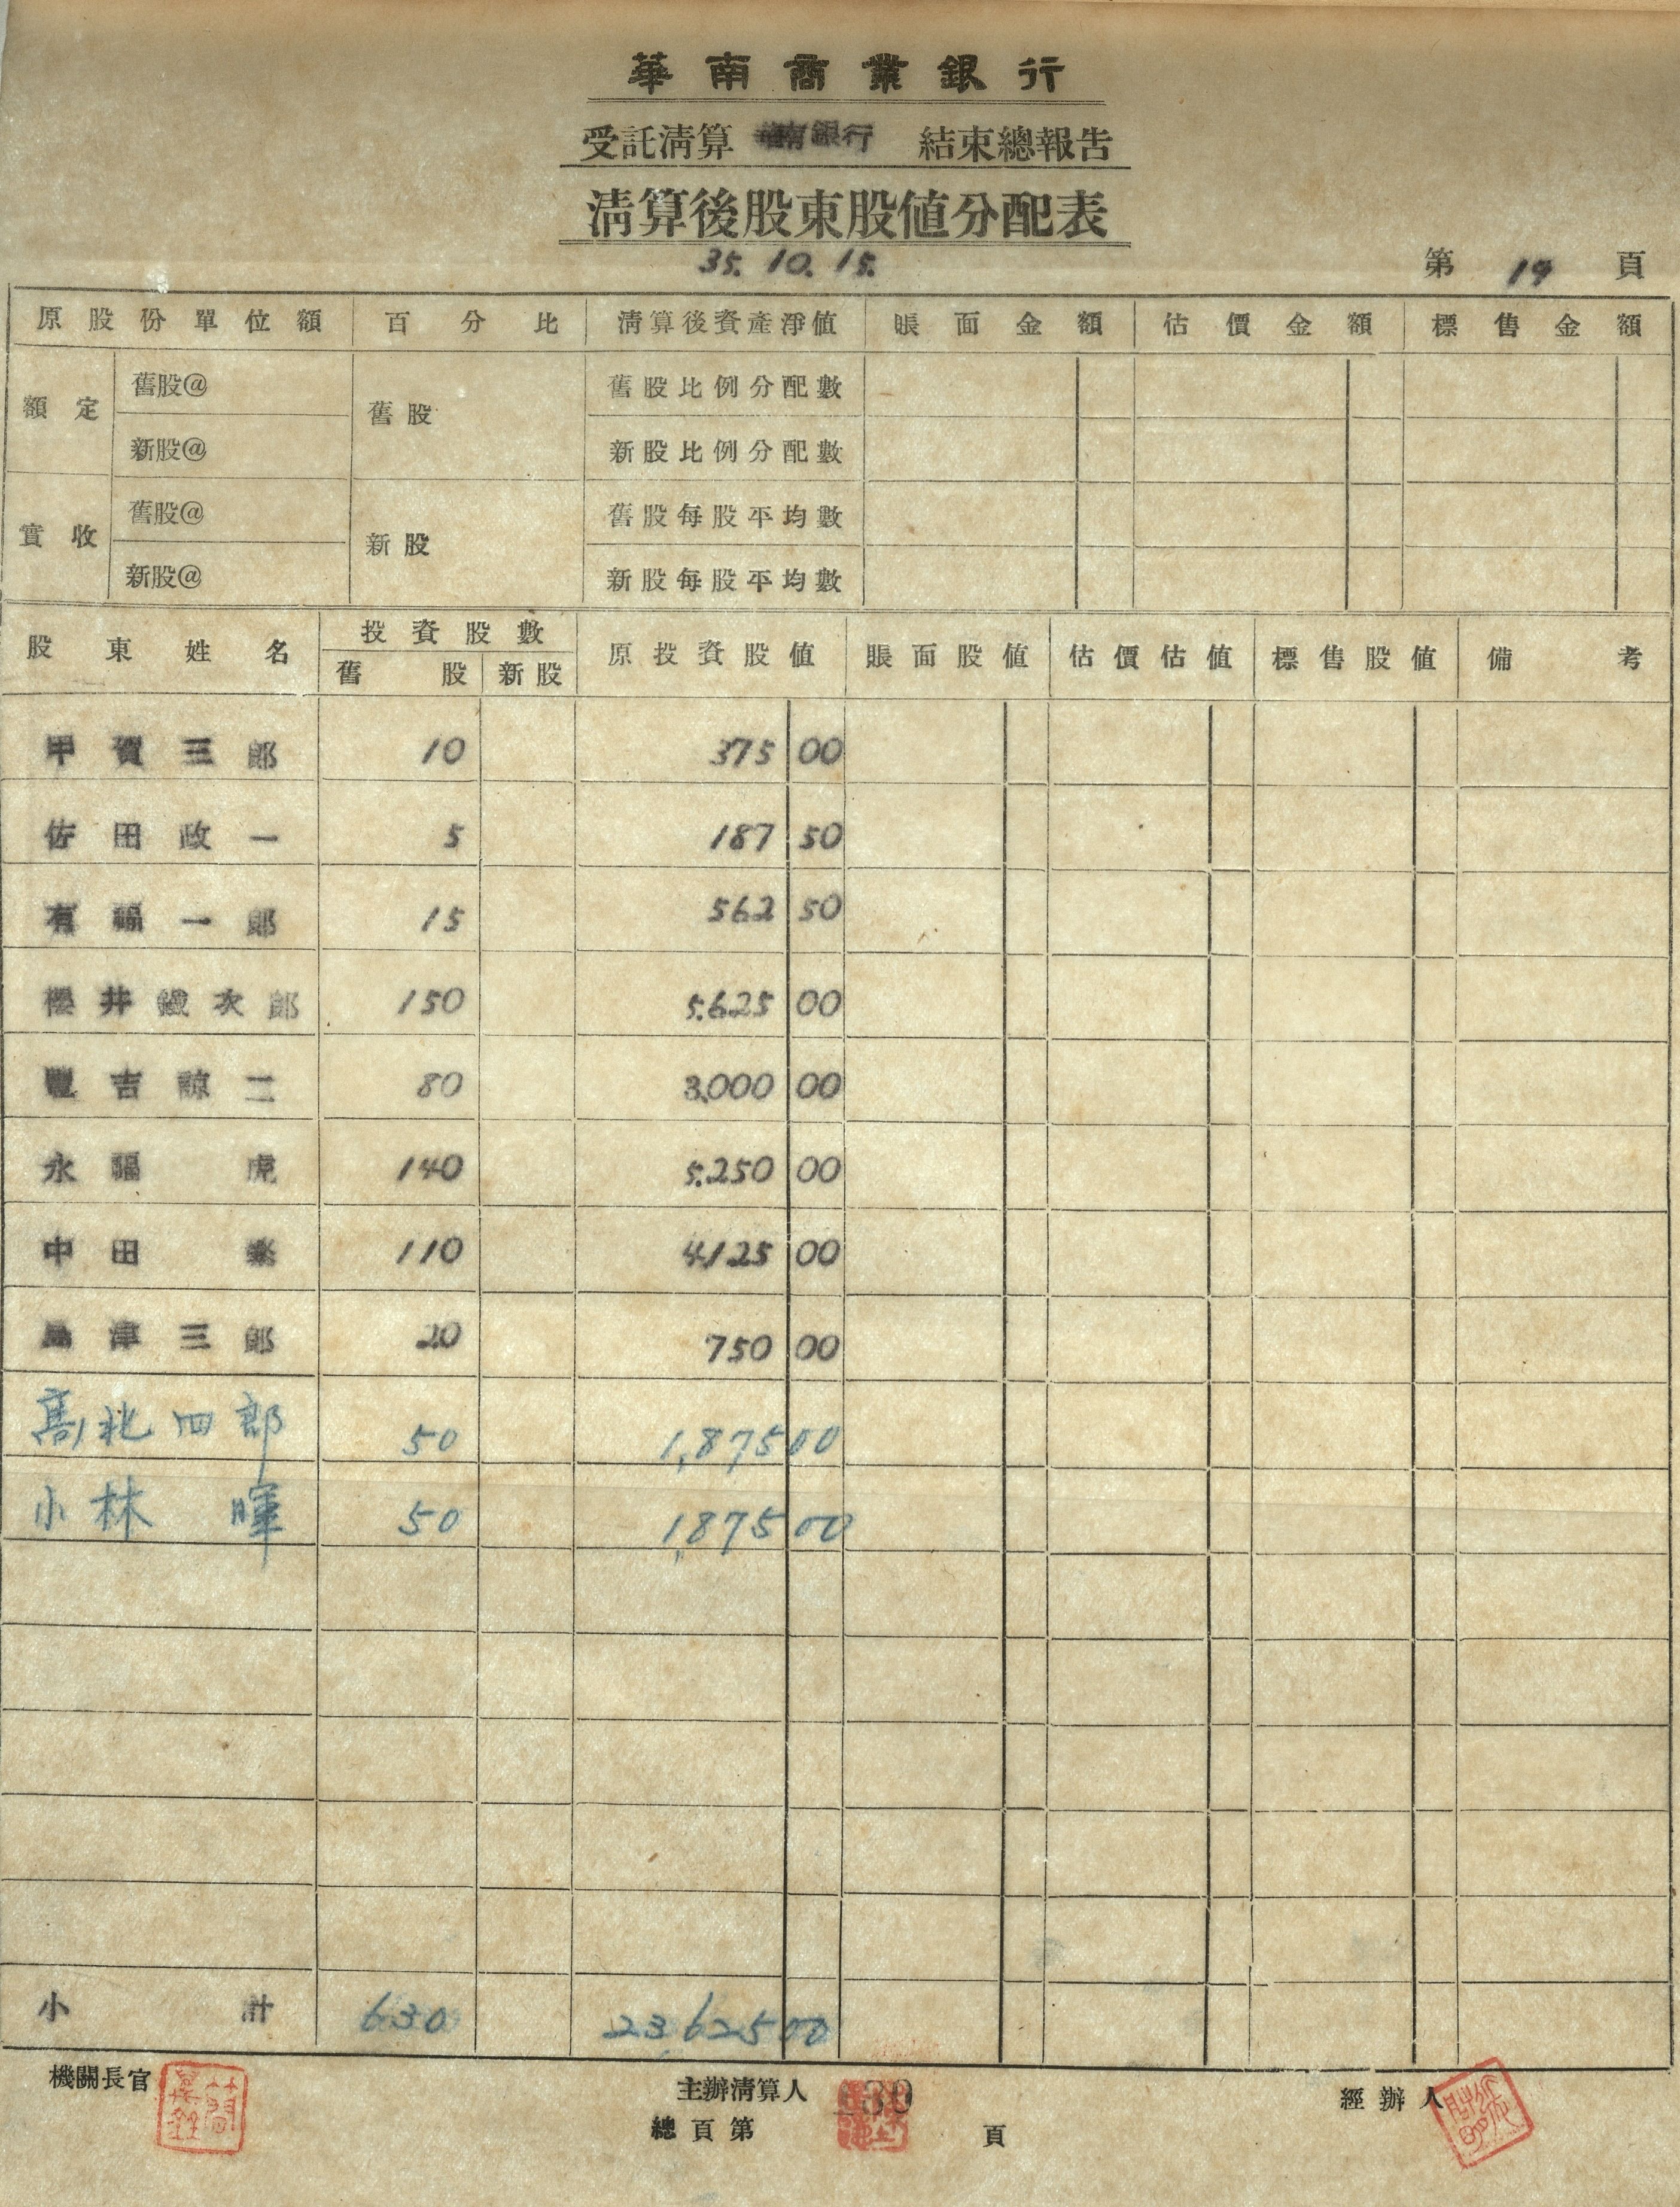 華南商業銀行
受託清算 華南銀行 結束總報告
清算後股東股値分配表
35. 10. 15.
第 19 頁
原股份單位額 百分比 清算後資產淨値 賬面金額 估價金額 標售金額
額定 舊股@ 舊股 舊股比例分配數
新股@ 新股比例分配數
實收 舊股@ 新股 舊股每股平均數
新股@ 新股每股平均數
股東姓名 投資股數 原投資股値 賬面股値 估價估値 標售股値 備考
舊股 新股
甲賀三郎 10 375 00
佐田政一 5 187 50
有福一郎 15 562 50
櫻井鐵次郎 150 5.625 00
吉諒二 80 3,000 00
永福虎 140 5.250 00
中田 110 4,125 00
島津三郎 20 750 00
高北四郎 50 1,875 00
小林暉 50 1,875 00
小計 630 23625 00
機關長官 主辦清算人 經辦人
總頁第 頁